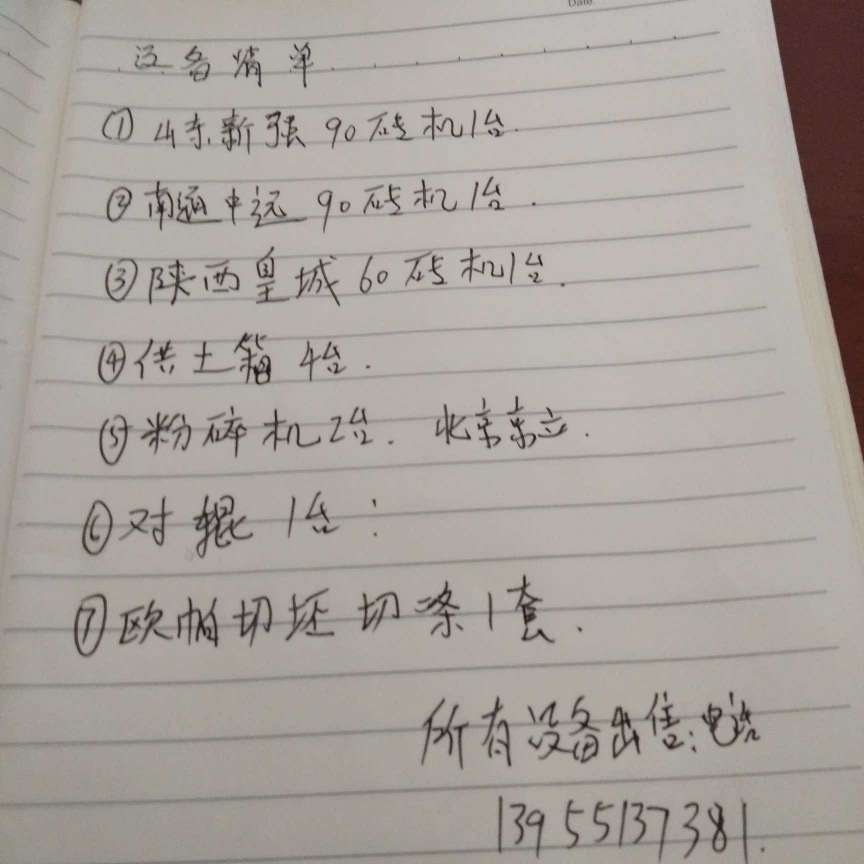 Date.
设备清单
① 山东新强 90砖机1台.
② 南通中远 90砖机1台.
③ 陕西皇城 60砖机1台.
④ 供土箱 4台.
⑤ 粉碎机2台. 北京京立.
⑥ 对辊 1台:
⑦ 欧帕切坯切条1套.
所有设备出售:电话
13955137381.